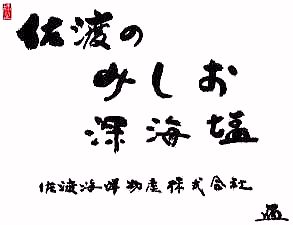 佐渡の
みしお
深海塩
佐渡海洋物産株式会社